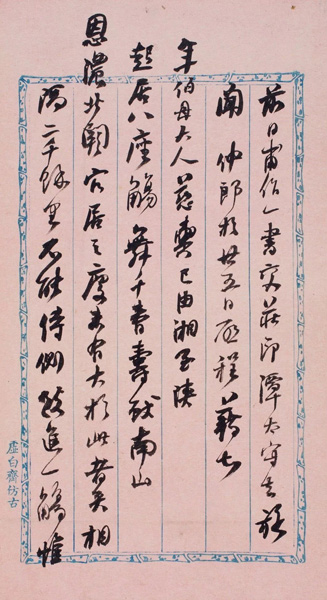 前日甫作一書交莊印潭太守
聞 仲郎於廿五日啟程藉知
年伯母大人慈輿已由湘至陝
起居八座觴舞千春壽獻南山
恩濃北闕官居之慶未有大於此者矣相
隔二千餘里不能侍側敬進一觴惟
虛白齋仿古